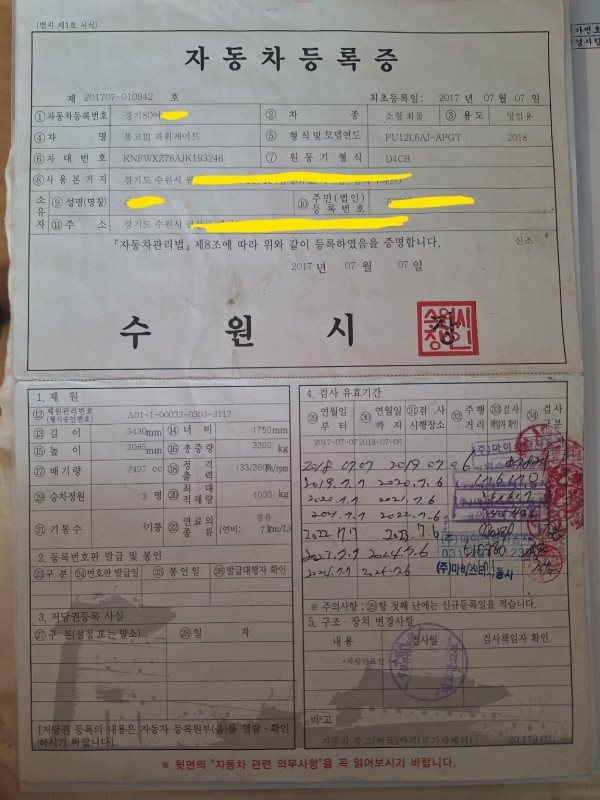 [별지 제1호 서식]
자동차등록증
제 201707-010942 호 최초등록일: 2017 년 07 월 07 일
① 자동차등록번호 경기80아 ② 차 종 소형 화물 ③ 용도 영업용
④ 차 명 봉고III 파워게이트 ⑤ 형식 및 모델연도 PU12L6AJ-APGT 2018
⑥ 차 대 번 호 KNFWXZ76AJK193246 ⑦ 원 동 기 형 식 D4CB
⑧ 사 용 본 거 지 경기도 수원시
소유자 ⑨ 성명(명칭) ⑩ 주민(법인)등록번호
⑪ 주 소 경기도 수원시
「자동차관리법」 제8조에 따라 위와 같이 등록하였음을 증명합니다. 신조
2017 년 07 월 07 일
수 원 시 장
1. 제 원
⑫ 제원관리번호 (형식승인번호) A01-1-00033-0303-3117
⑬ 길 이 5430mm ⑭ 너 비 1750mm
⑮ 높 이 2085mm ⑯ 총중량 3360 kg
⑰ 배기량 2497 cc ⑱ 정격출력 133/3600 Ps/rpm
⑲ 승차정원 3 명 ⑳ 최대적재량 1000 kg
㉑ 기통수 4기통 ㉒ 연료의 종류 경유 (연비: km/L)
2. 등록번호판 발급 및 봉인
㉓ 구 분 ㉔ 번호판 발급일 ㉕ 봉 인 일 ㉖ 발급대행자 확인
3. 저당권등록 사실
㉗ 구 분(설정 또는 말소) ㉘ 일 자
[저당권 등록의 내용은 자동차 등록원부(을)를 열람·확인
하시기 바랍니다]
4. 검사 유효기간
㉙ 연월일부터 ㉚ 연월일까지 ㉛ 검사시행장소 ㉜ 주행거리 ㉝ 검사책임자확인 ㉞ 검사구분
2017-07-07 2018-07-06
2018.07.07 2019.07.06
2019.7.7 2020.7.6
2020.7.7 2021.7.6
2021.7.7 2022.7.6
2022.7.7 2023.7.6
2023.7.7 2024.7.6
2024.7.7
※ 주의사항: ㉙항 첫째 난에는 신규등록일을 적습니다.
5. 구조·장치 변경사항
내용 검사일 검사책임자 확인
비고
※ 뒷면의 "자동차 관련 의무사항"을 꼭 읽어보시기 바랍니다.